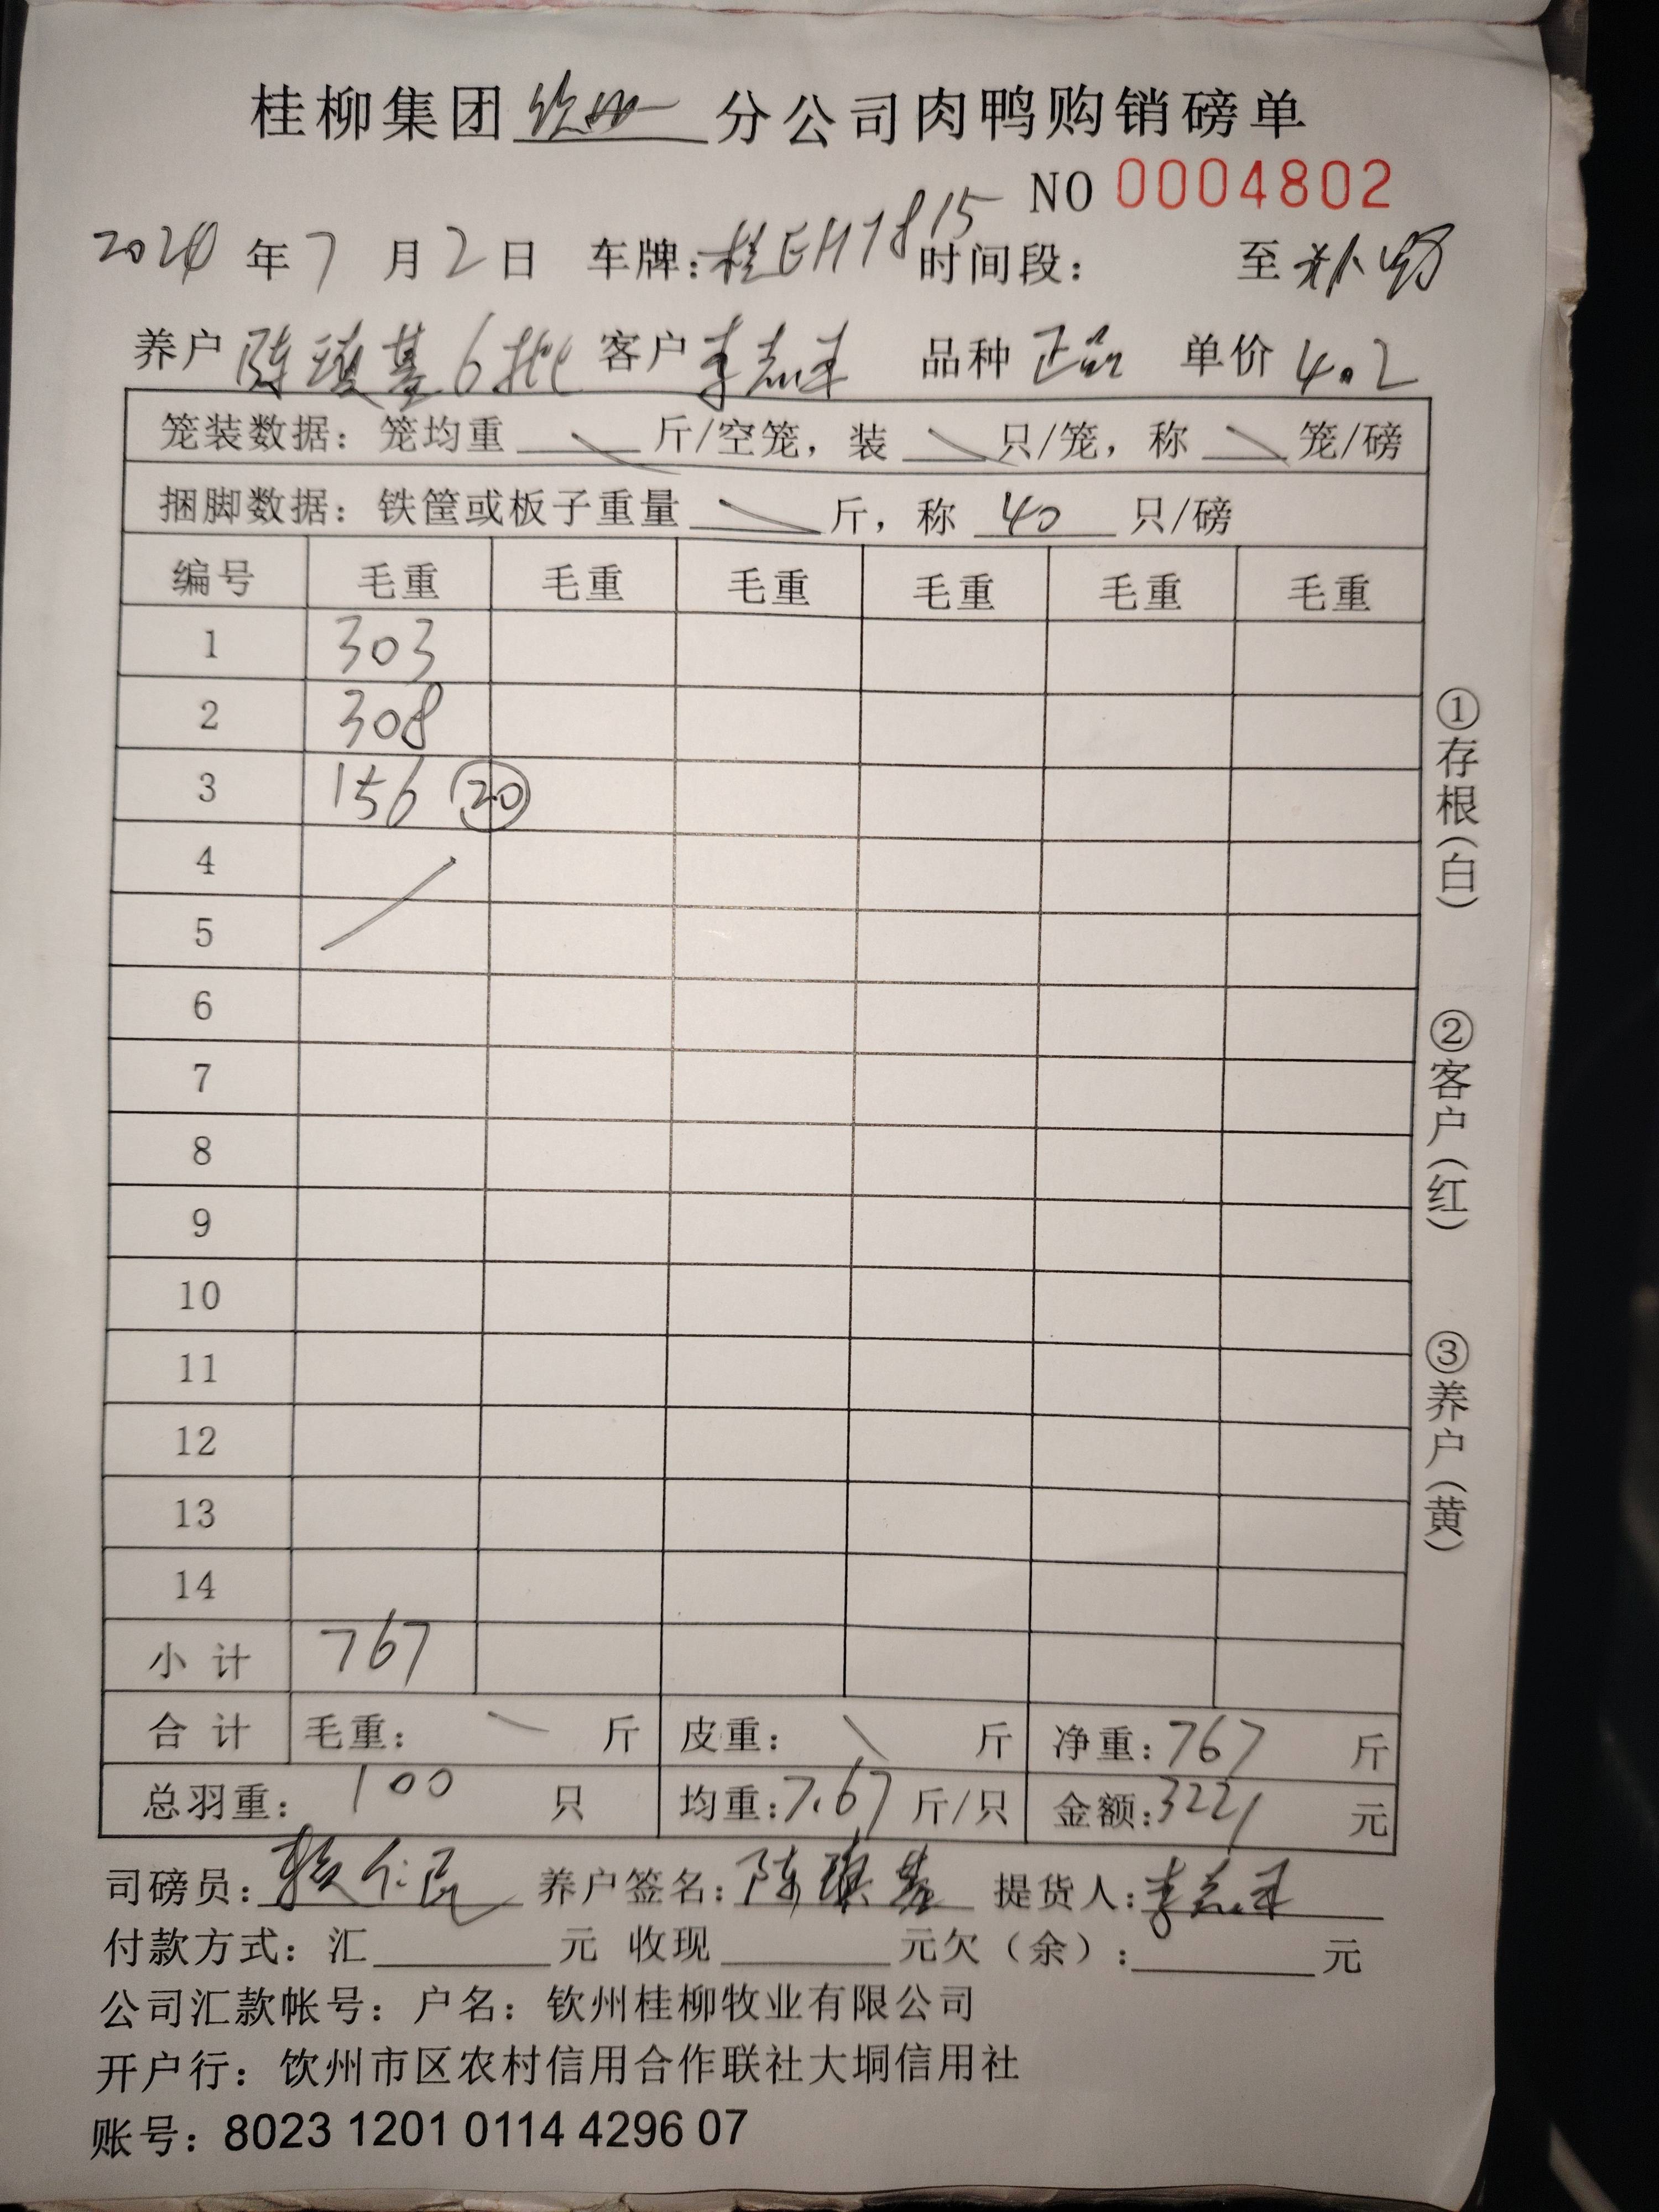 桂柳集团 钦州 分公司肉鸭购销磅单
NO 0004802
2024 年 7 月 2 日 车牌:桂EH1815 时间段: 至 补磅
养户 陈琪基 6批 客户 李志 品种 正品 单价 4.2
笼装数据:笼均重 斤/空笼,装 只/笼,称 笼/磅
捆脚数据:铁筐或板子重量 斤,称 40 只/磅
编号 毛重 毛重 毛重 毛重 毛重 毛重
1 303
2 308
3 156 20
4
5
6
7
8
9
10
11
12
13
14
小计 767
合计 毛重: 斤 皮重: 斤 净重:767 斤
总羽重: 100 只 均重:7.67 斤/只 金额:3221 元
司磅员: 仁 养户签名:陈琪基 提货人:李志
付款方式:汇 元 收现 元欠(余): 元
公司汇款帐号:户名:钦州桂柳牧业有限公司
开户行:饮州市区农村信用合作联社大垌信用社
账号:8023 1201 0114 4296 07
①存根(白)
②客户(红)
③养户(黄)